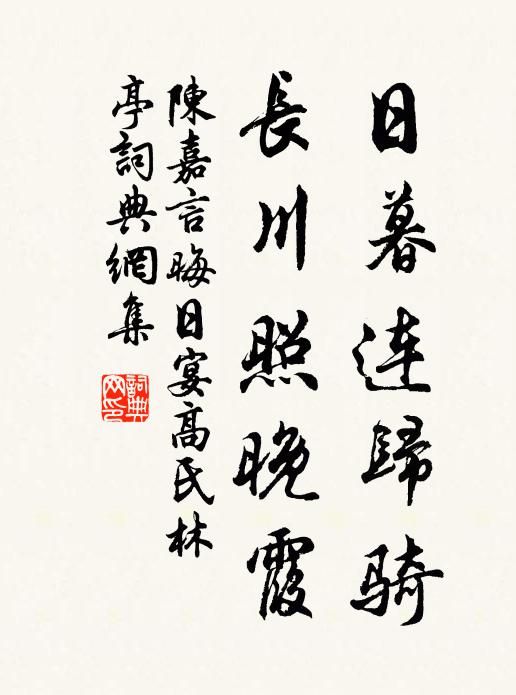 日暮连歸骑
長川照晚霞
陳嘉言晦日宴高氏林
亭詞典網集
詞典网印